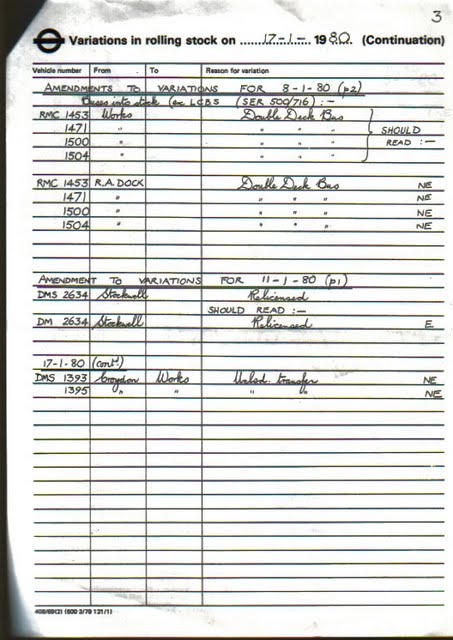 3
Variations in rolling stock on 17-1- 1980. (Continuation)
Vehicle number From To Reason for variation
AMENDMENTS TO VARIATIONS FOR 8-1-80 (p2)
Buses into stock (ex LCBS (SER 500/716) :-
RMC 1453 Works Double Deck Bus
1471 " " " " SHOULD
1500 " " " " READ :-
1504 " " " "
RMC 1453 R.A. DOCK Double Deck Bus NE
1471 " " " " NE
1500 " " " " NE
1504 " " " " NE
AMENDMENT TO VARIATIONS FOR 11-1-80 (p1)
DMS 2634 Stockwell Relicensed
SHOULD READ :-
DM 2634 Stockwell Relicensed E
17-1-80 (contd)
DMS 1393 Croydon Works Unlsd. transfer NE
1395 " " " " NE
408/69(2) (500 3/79 121/1)